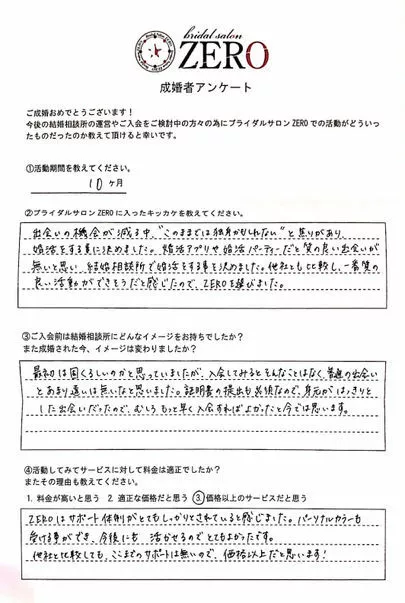 bridal salon
ZERO
成婚者アンケート
ご成婚おめでとうございます！
今後の結婚相談所の運営やご入会をご検討中の方々の為にブライダルサロンZEROでの活動がどういっ
たものだったのか教えて頂けると幸いです。
①活動期間を教えてください。
10ヶ月
②ブライダルサロンZEROに入ったキッカケを教えてください。
出会いの機会が減る中、"このままでは独身かもしれない"と焦りがあり、
婚活をする事に決めました。婚活アプリや婚活パーティーだと質の良い出会いが
無いと思い、結婚相談所で婚活をする事を決めました。他社とも比較し、一番質の
良い活動ができそうだと感じたので、ZEROを選びました。
③ご入会前は結婚相談所にどんなイメージをお持ちでしたか？
また成婚された今、イメージは変わりましたか？
最初は固くるしいのかと思っていましたが、入会してみるとそんなことはなく、普通の出会い
とあまり違いは無いなと思いました。証明書の提出も必須なので、身元がはっきりと
した出会いだったので、むしろもっと早く入会すればよかったと今では思います。
④活動してみてサービスに対して料金は適正でしたか？
またその理由も教えてください。
1. 料金が高いと思う 2. 適正な価格だと思う ③価格以上のサービスだと思う
ZEROはサポート体制がとてもしっかりとされていると感じました。パーソナルカラーも
受ける事ができ、今後にも活かせるのでとてもよかったです。
他社と比較しても、ここまでのサポートは無いので、価格以上だと思います！